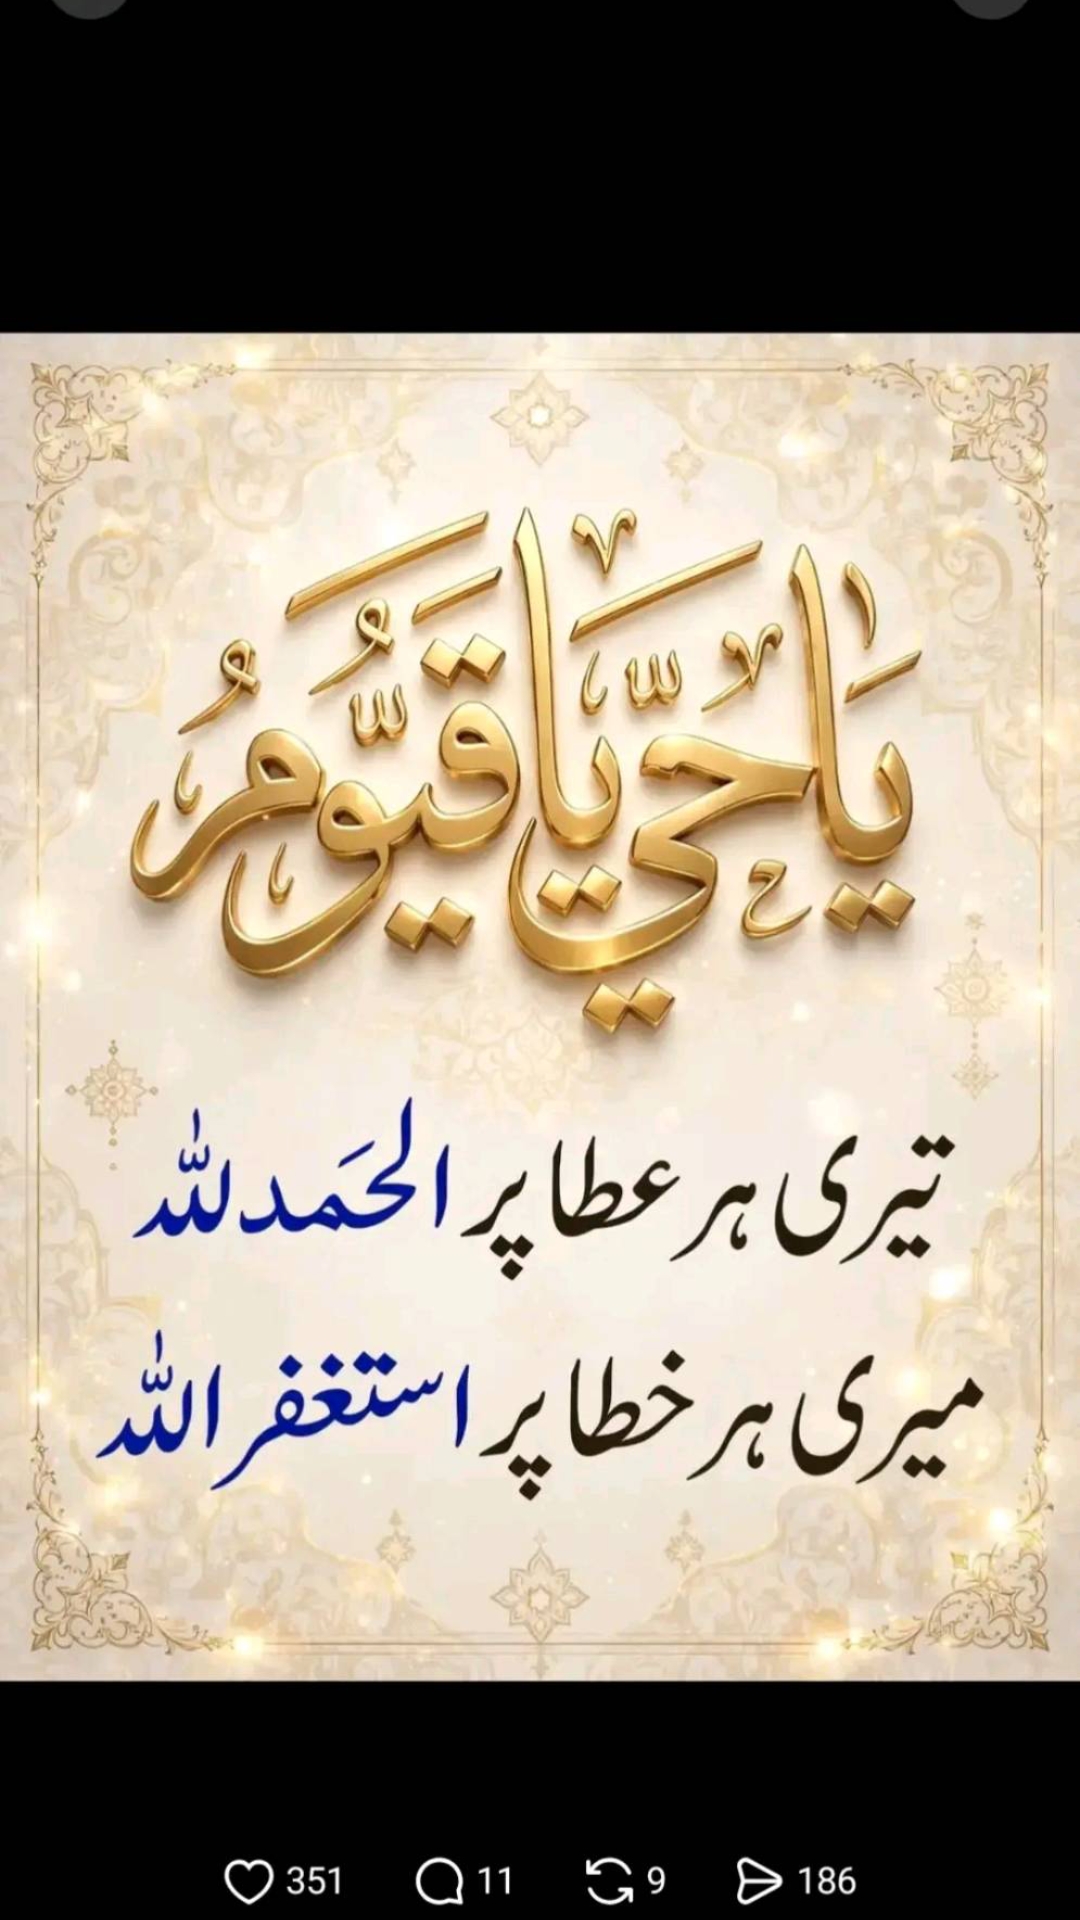 يَا حَيُّ يَا قَيُّومُ
تیری ہر عطا پر الحَمدللہ
میری ہر خطا پر استغفر اللہ
351 11 9 186